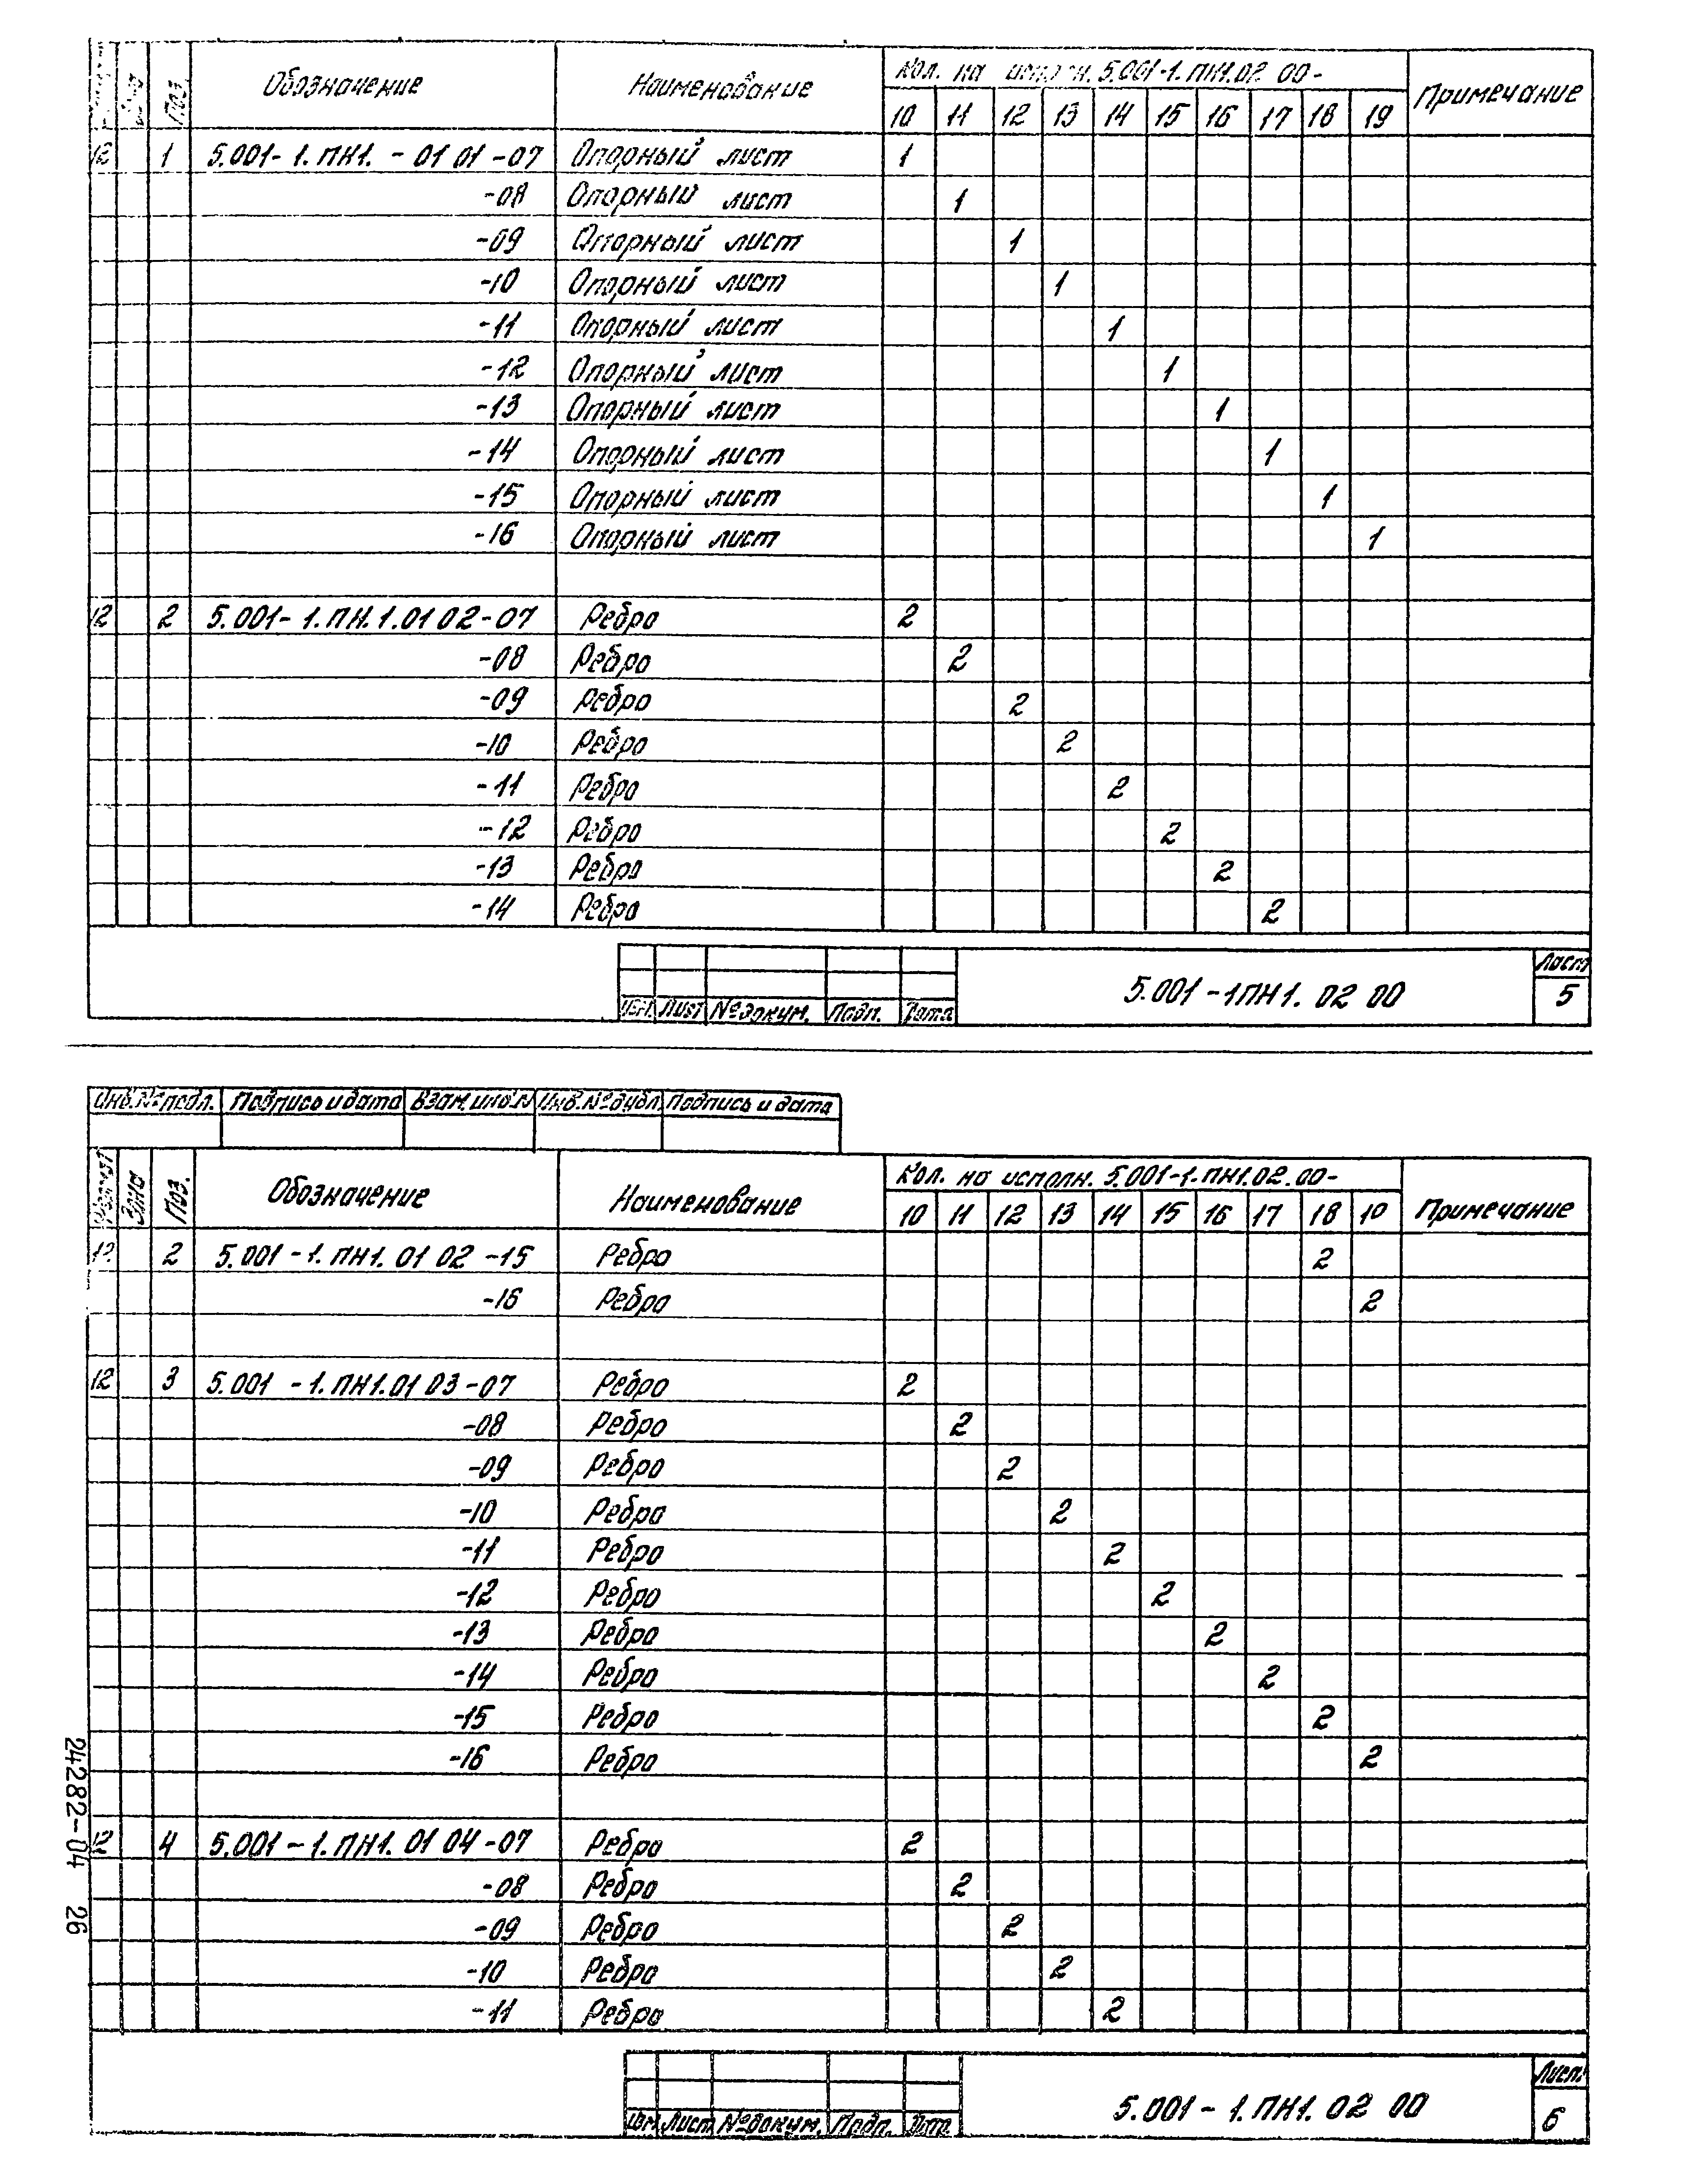 Поз. Обозначение Наименование Кол. на исполн. 5.001-1.ПН1.02 00- Примечание
10 11 12 13 14 15 16 17 18 19
12 1 5.001-1.ПН1. - 01 01 -07 Опорный лист 1
-08 Опорный лист 1
-09 Опорный лист 1
-10 Опорный лист 1
-11 Опорный лист 1
-12 Опорный лист 1
-13 Опорный лист 1
-14 Опорный лист 1
-15 Опорный лист 1
-16 Опорный лист 1
12 2 5.001-1.ПН.1.01 02-07 Ребро 2
-08 Ребро 2
-09 Ребро 2
-10 Ребро 2
-11 Ребро 2
-12 Ребро 2
-13 Ребро 2
-14 Ребро 2
5.001-1ПН1. 02 00 Лист
5
Изм. Лист № докум. Подп. Дата
Инв.№ подл. Подпись и дата Взам.инв.№ Инв.№ дубл. Подпись и дата
Формат Зона Поз. Обозначение Наименование Кол. на исполн. 5.001-1.ПН1.02.00- Примечание
10 11 12 13 14 15 16 17 18 10
12 2 5.001-1.ПН1. 01 02 -15 Ребро 2
-16 Ребро 2
12 3 5.001 -1.ПН1.01 03-07 Ребро 2
-08 Ребро 2
-09 Ребро 2
-10 Ребро 2
-11 Ребро 2
-12 Ребро 2
-13 Ребро 2
-14 Ребро 2
-15 Ребро 2
-16 Ребро 2
12 4 5.001-1.ПН1. 01 04-07 Ребро 2
-08 Ребро 2
-09 Ребро 2
-10 Ребро 2
-11 Ребро 2
5.001-1.ПН1. 02 00 Лист
6
Изм. Лист № докум. Подп. Дата
24282-04 26